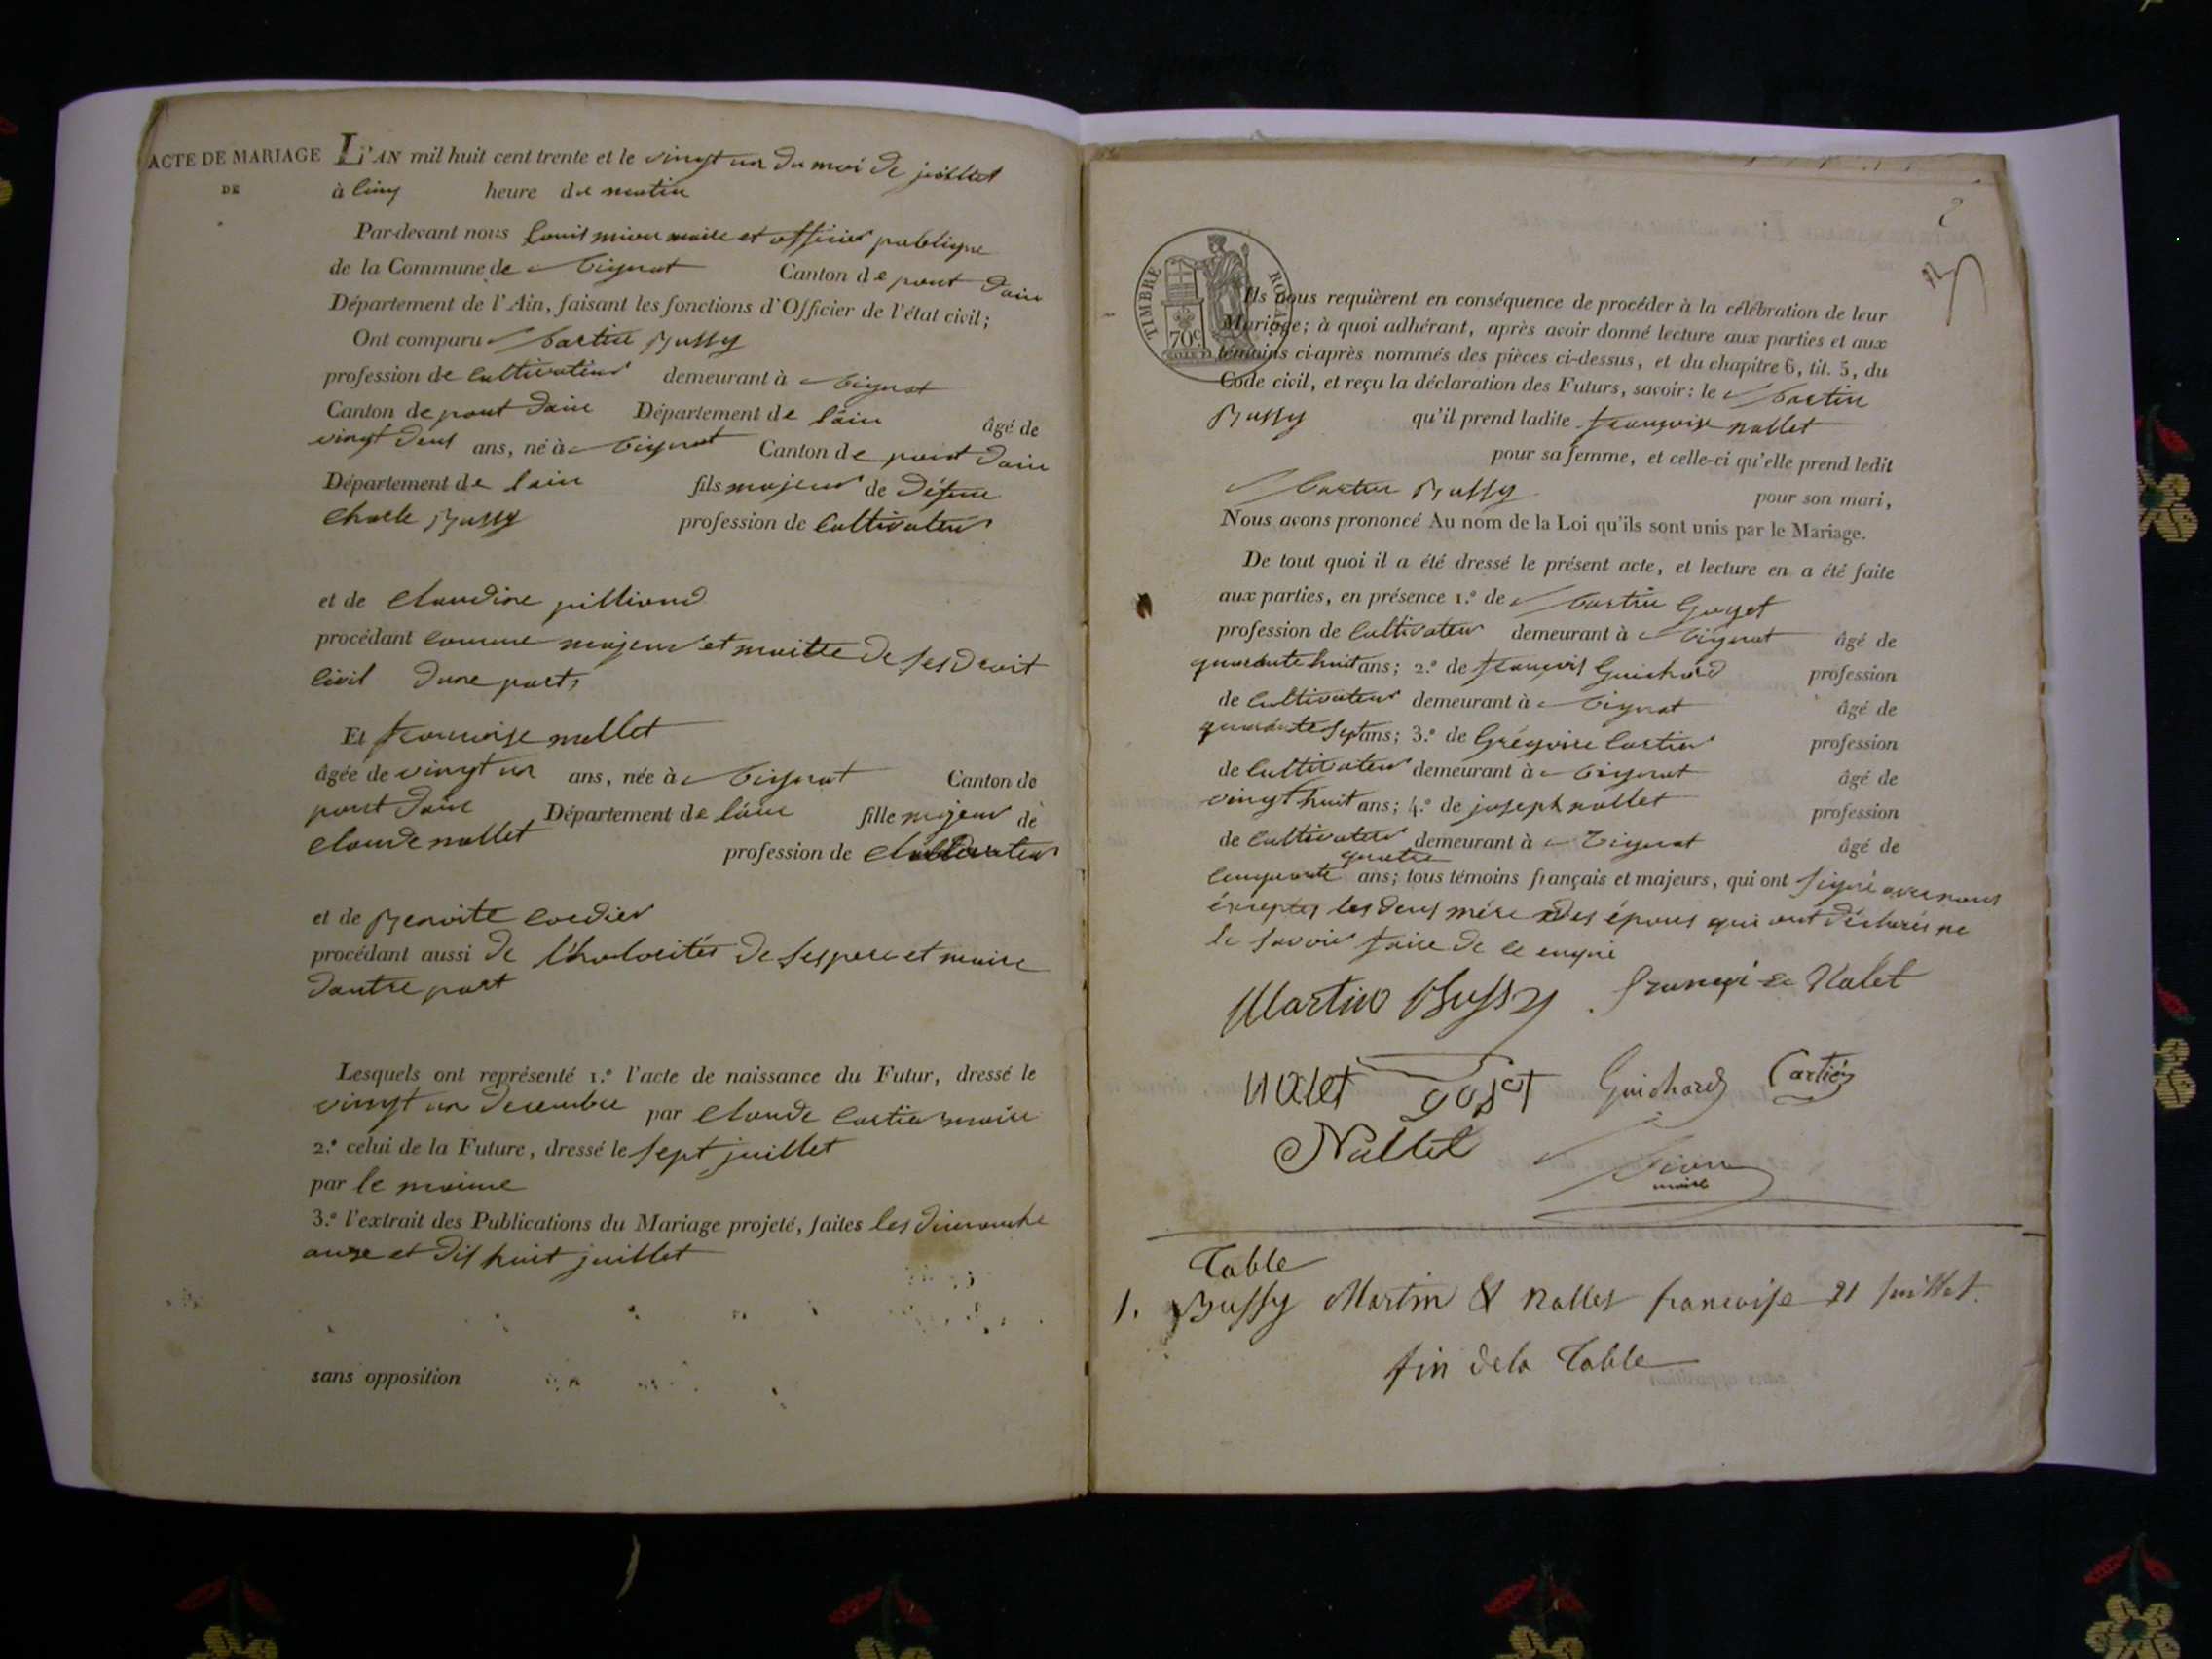 ACTE DE MARIAGE
DE
L'AN mil huit cent trente et le vingt un du moi de juillet
à cinq heure du matin
Par-devant nous Louis mion maire et officier publique
de la Commune de Tignat Canton de pont dain
Département de l'Ain, faisant les fonctions d'Officier de l'état civil;
Ont comparu Martin Bussy
profession de Cultivateur demeurant à Tignat
Canton de pont dain Département de lain âgé de
vingt deus ans, né à Tignat Canton de pont dain
Département de lain fils majeur de défunt
Charle Bussy profession de Cultivateur
et de Claudine pilliond
procédant comme majeur et maitre de ses droit
Civil dune part,
Et francoise nallet
âgée de vingt un ans, née à Tignat Canton de
pont dain Département de lain fille majeur de
Claude nallet profession de Cultivateur
et de Benoite Cordier
procédant aussi de ses pere et maire
dautre part
Lesquels ont représenté 1.° l'acte de naissance du Futur, dressé le
vingt un decembre par Claude Cartier maire
2.° celui de la Future, dressé le sept juillet
par le maime
3.° l'extrait des Publications du Mariage projeté, faites les dimanche
onze et dis huit juillet
sans opposition
2
TIMBRE ROYAL
70c
Ils nous requièrent en conséquence de procéder à la célébration de leur
Mariage; à quoi adhérant, après avoir donné lecture aux parties et aux
témoins ci-après nommés des pièces ci-dessus, et du chapitre 6, tit. 5, du
Code civil, et reçu la déclaration des Futurs, savoir: le Martin
Bussy qu'il prend ladite francoise nallet
pour sa femme, et celle-ci qu'elle prend ledit
Martin Bussy pour son mari,
Nous avons prononcé Au nom de la Loi qu'ils sont unis par le Mariage.
De tout quoi il a été dressé le présent acte, et lecture en a été faite
aux parties, en présence 1.° de Martin Goyet
profession de Cultivateur demeurant à Tignat âgé de
quarante huit ans; 2.° de francois Guichard profession
de Cultivateur demeurant à Tignat âgé de
quarante sept ans; 3.° de Grégoire Cartier profession
de Cultivateur demeurant à Tignat âgé de
vingt huit ans; 4.° de joseph nallet profession
de Cultivateur demeurant à Tignat âgé de
quatre
Cinquante ans; tous témoins français et majeurs, qui ont signé avec nous
éxceptez les deus mére des épous qui ont déclarés ne
le savoir faire de ce enqui
Martin Bussy francoise Nalet
nalet goyet Guichard Cartier
Nallet
mion
maire
Table
1. Bussy Martin & nallet francoise 21 juillet.
fin dela Table